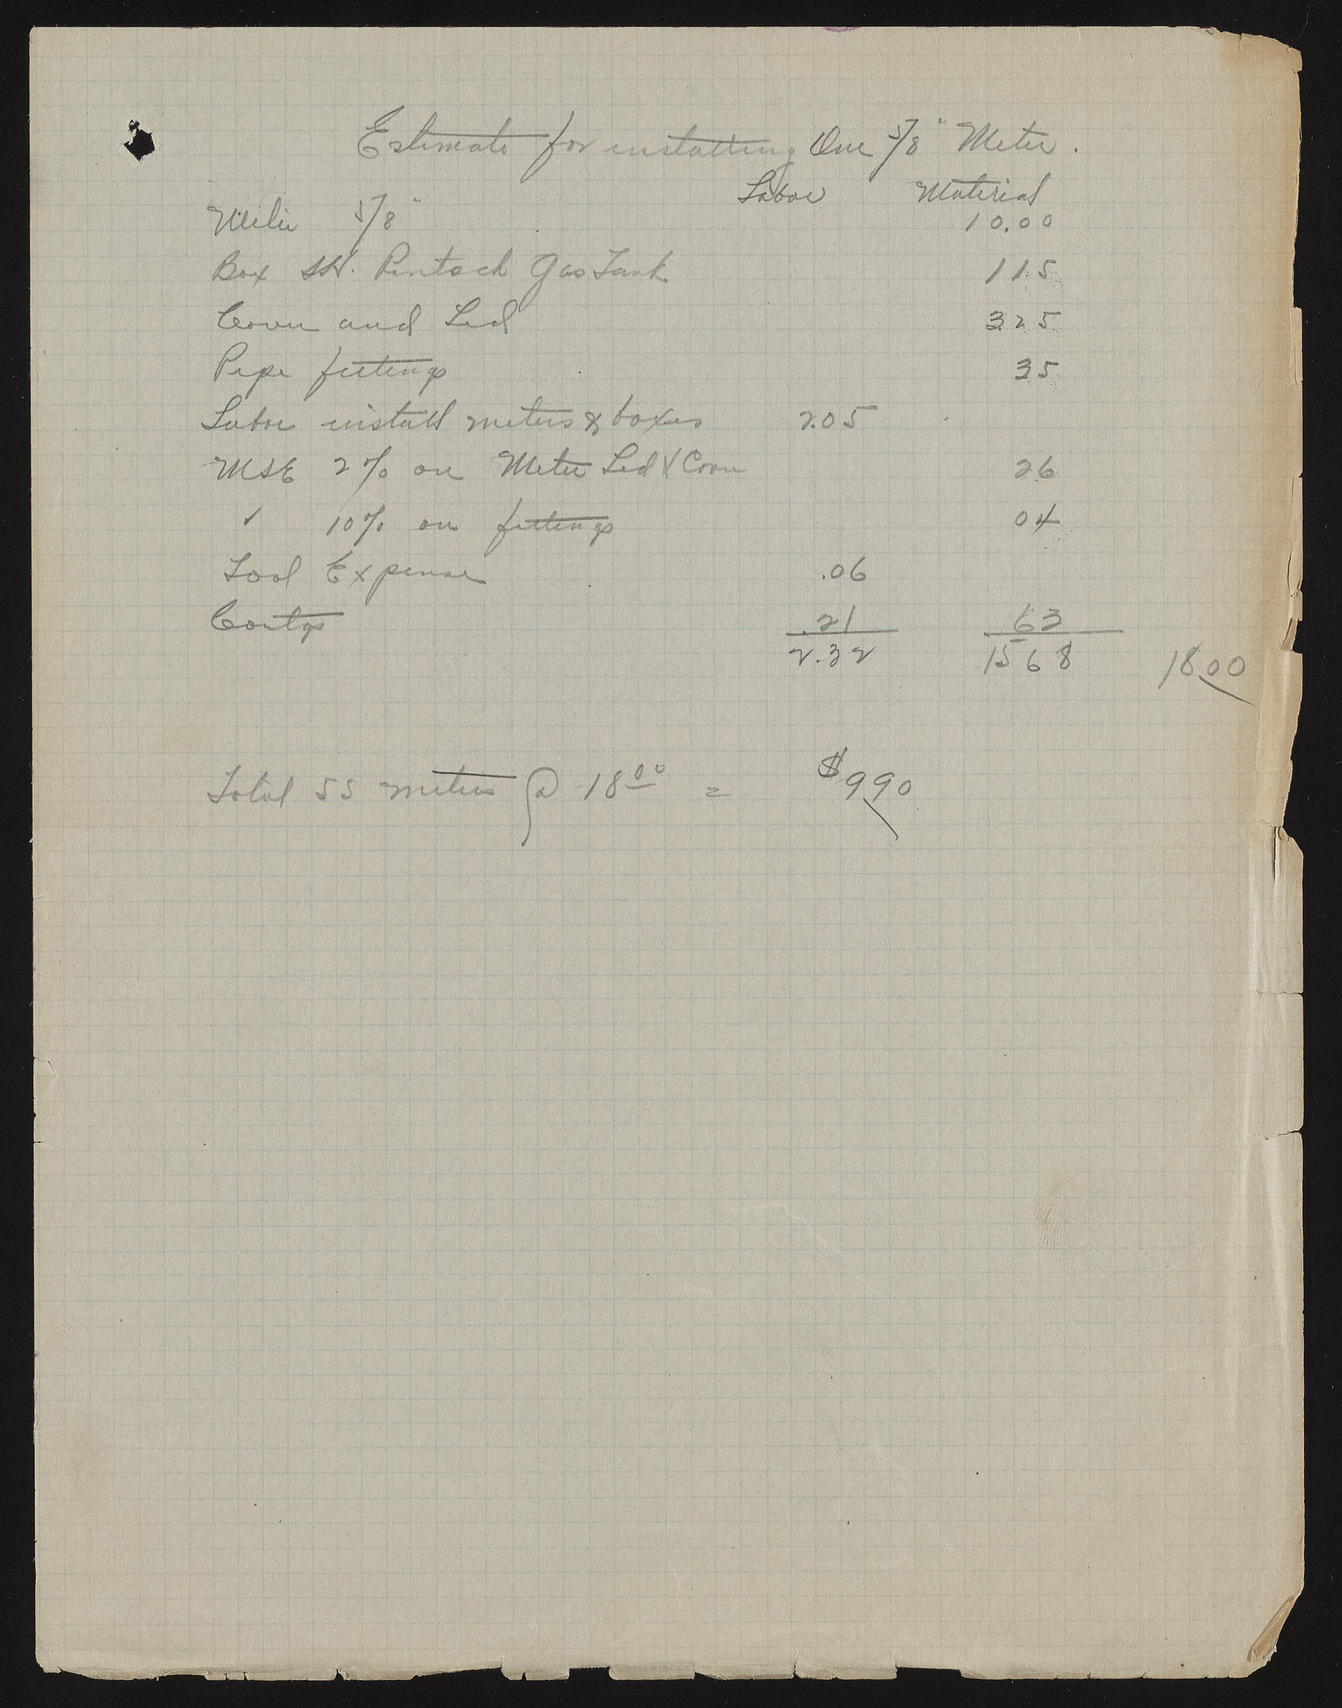 Estimate for installing One 5/8" Meter.
Labor Material
Meter 5/8" 10.00
Box SH. Pintsch Gas Tank 115
Cover and Lid 325
Pipe fittings 35
Labor install meters & boxes 2.05
MSE 2% on Meter Lid & Cover 26
" 10% on fittings 04
Tool Expense .06
Contgs .21 63
2.32 1568 18.00
Total 55 meters @ 18 00 = $990